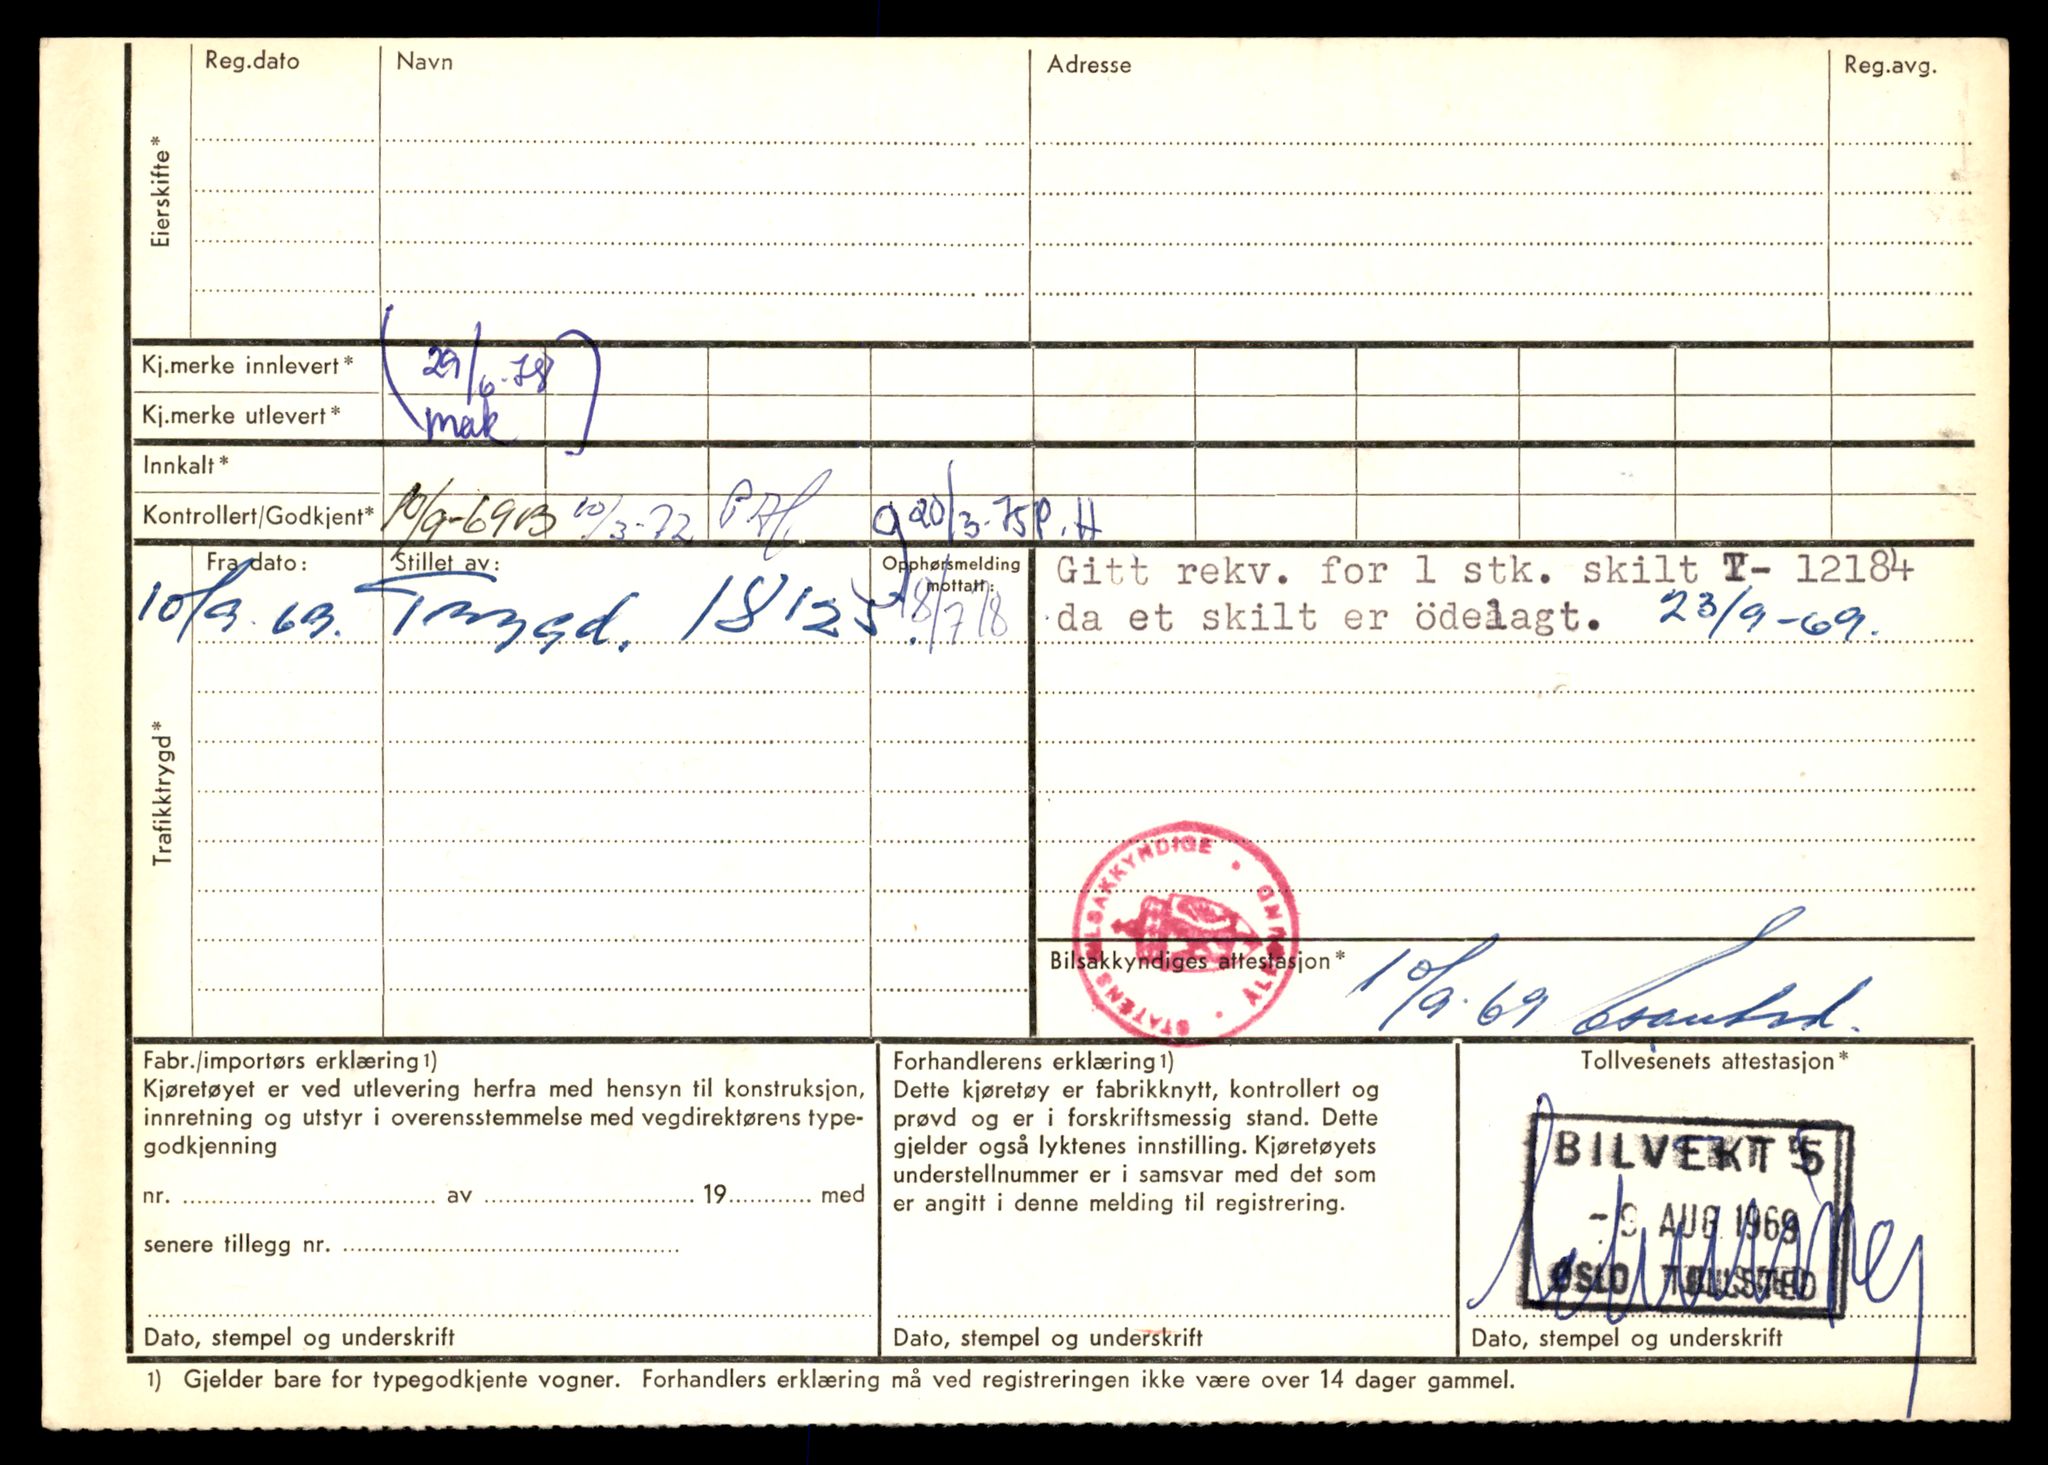 Reg.dato Navn Adresse Reg.avg.
Eierskifte*
Kj.merke innlevert* 29/6-78
Kj.merke utlevert* mak
Innkalt*
Kontrollert/Godkjent* 10/9-69 10/3-72 g 20/3-75 P.H
Fra dato: Stillet av: Opphørsmelding mottatt:
10/9.69. Trygd. 18125. 18/7 78
Gitt rekv. for 1 stk. skilt T- 12184
da et skilt er ödelagt. 23/9-69.
Trafikktrygd*
STATENS BILSAKKYNDIGE
Bilsakkyndiges attestasjon* 10/9.69
Fabr./importørs erklæring1)
Kjøretøyet er ved utlevering herfra med hensyn til konstruksjon,
innretning og utstyr i overensstemmelse med vegdirektørens type-
godkjenning
nr. av 19 med
senere tillegg nr.
Dato, stempel og underskrift
Forhandlerens erklæring1)
Dette kjøretøy er fabrikknytt, kontrollert og
prøvd og er i forskriftsmessig stand. Dette
gjelder også lyktenes innstilling. Kjøretøyets
understellnummer er i samsvar med det som
er angitt i denne melding til registrering.
Dato, stempel og underskrift
Tollvesenets attestasjon*
BILVEKT 5
-9 AUG 1969
OSLO TOLLSTED
Dato, stempel og underskrift
1) Gjelder bare for typegodkjente vogner. Forhandlers erklæring må ved registreringen ikke være over 14 dager gammel.